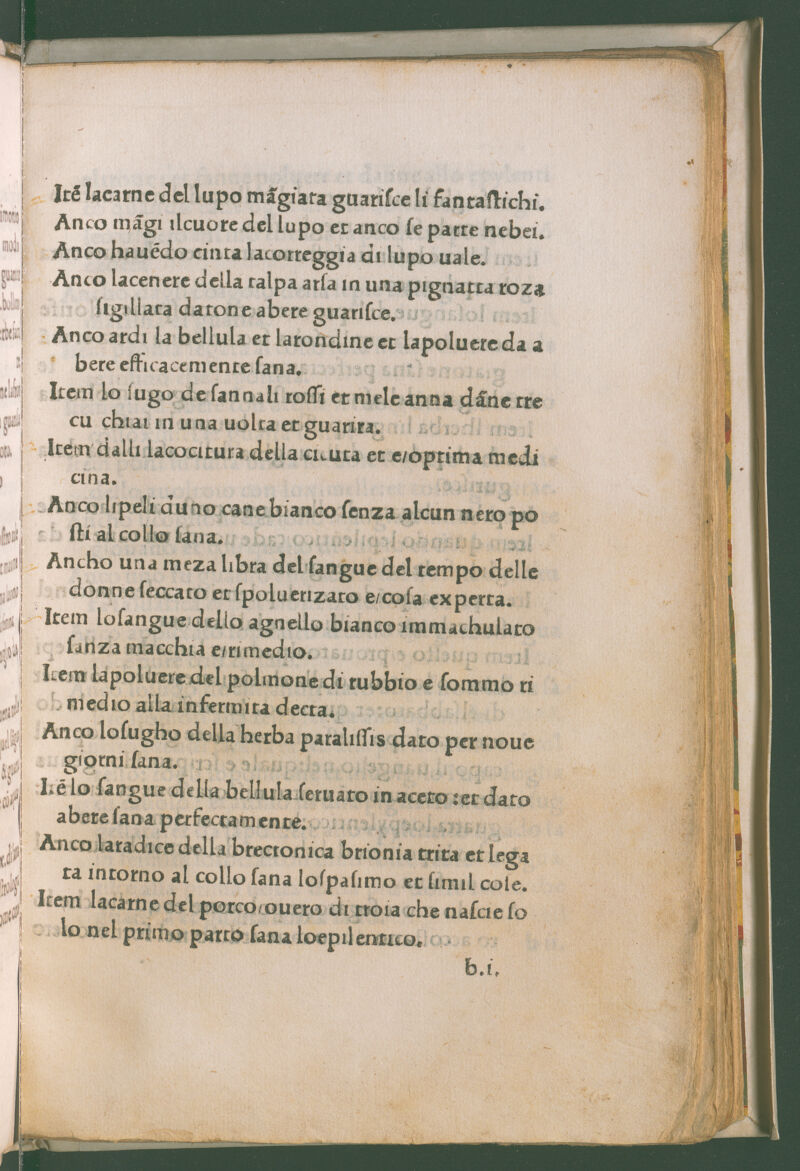 Ité lacarne del lupo mãgiata guariſce li fantaſtichi.
Anco mãgi ilcuore del lupo et anco ſe parte nebei.
Anco hauédo cinta lacorreggia di lupo uale.
Anco lacenere della talpa arſa in una pignatta roza
ſigillata datone abere guariſce.
Anco ardi la bellula et larondine et lapoluere da a
bere efficacemente ſana.
Item lo ſugo de ſannali roſſi et mele anna dáne tre
cu chiai in una uolta et guarira.
Item dalli lacocitura della cicuta et e/optima medi
cina.
Anco lipeli duno cane bianco ſenza alcun nero po
ſti al collo ſana.
Ancho una meza libra del ſangue del tempo delle
donne ſeccato et ſpoluerizato e/coſa experta.
Item loſangue dello agnello bianco immachulato
ſanza macchia e/rimedio.
Item lapoluere del polmone di rubbio e ſommo ri
medio alla infermita decta.
Anco loſugho della herba paraliſſis dato per noue
giorni ſana.
Ité lo ſangue della bellula ſeruato in aceto et dato
abere ſana perfectamente.
Anco laradice della brectonica brionia trita et lega
ta intorno al collo ſana loſpaſimo et ſimil coſe.
Item lacarne del porco/ouero di troia che naſcie ſo
lo nel primo parto ſana loepilentico.
b.i.